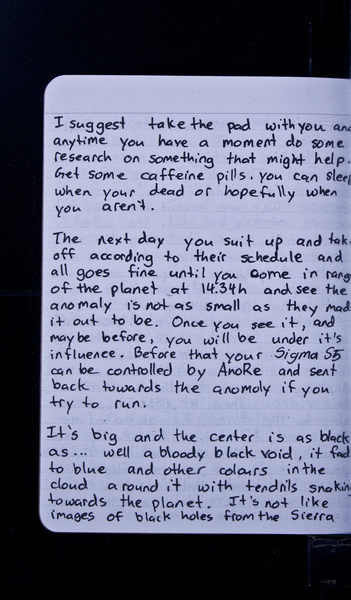 I suggest take the pad with you and
anytime you have a moment do some
research on something that might help.
Get some caffeine pills. you can sleep
when your dead or hopefully when
you aren't.
The next day you suit up and tak
off according to their schedule and
all goes fine until you come in rang
of the planet at 14:34h and see the
anomaly is not as small as they mad
it out to be. Once you see it, and
maybe before, you will be under it's
influence. Before that your Sigma S5
can be controlled by AnoRe and sent
back towards the anomoly if you
try to run.
It's big and the center is as black
as... well a bloody black void, it fad
to blue and other colours in the
cloud around it with tendrils snakin
towards the planet. It's not like
images of black holes from the Sierra